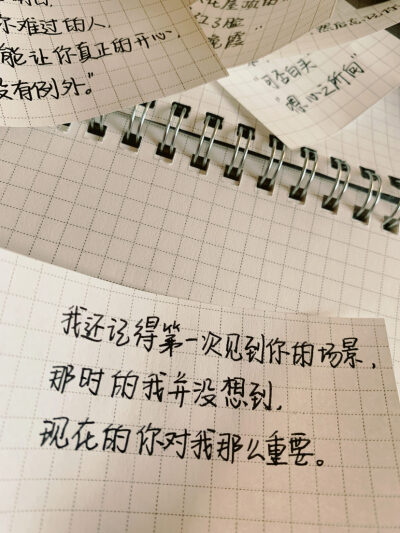 你难过的人.
能让你真正的开心.
没有例外。"
"可否白头"
"原心之所向"
我还记得第一次见到你的场景,
那时的我并没想到,
现在的你对我那么重要。